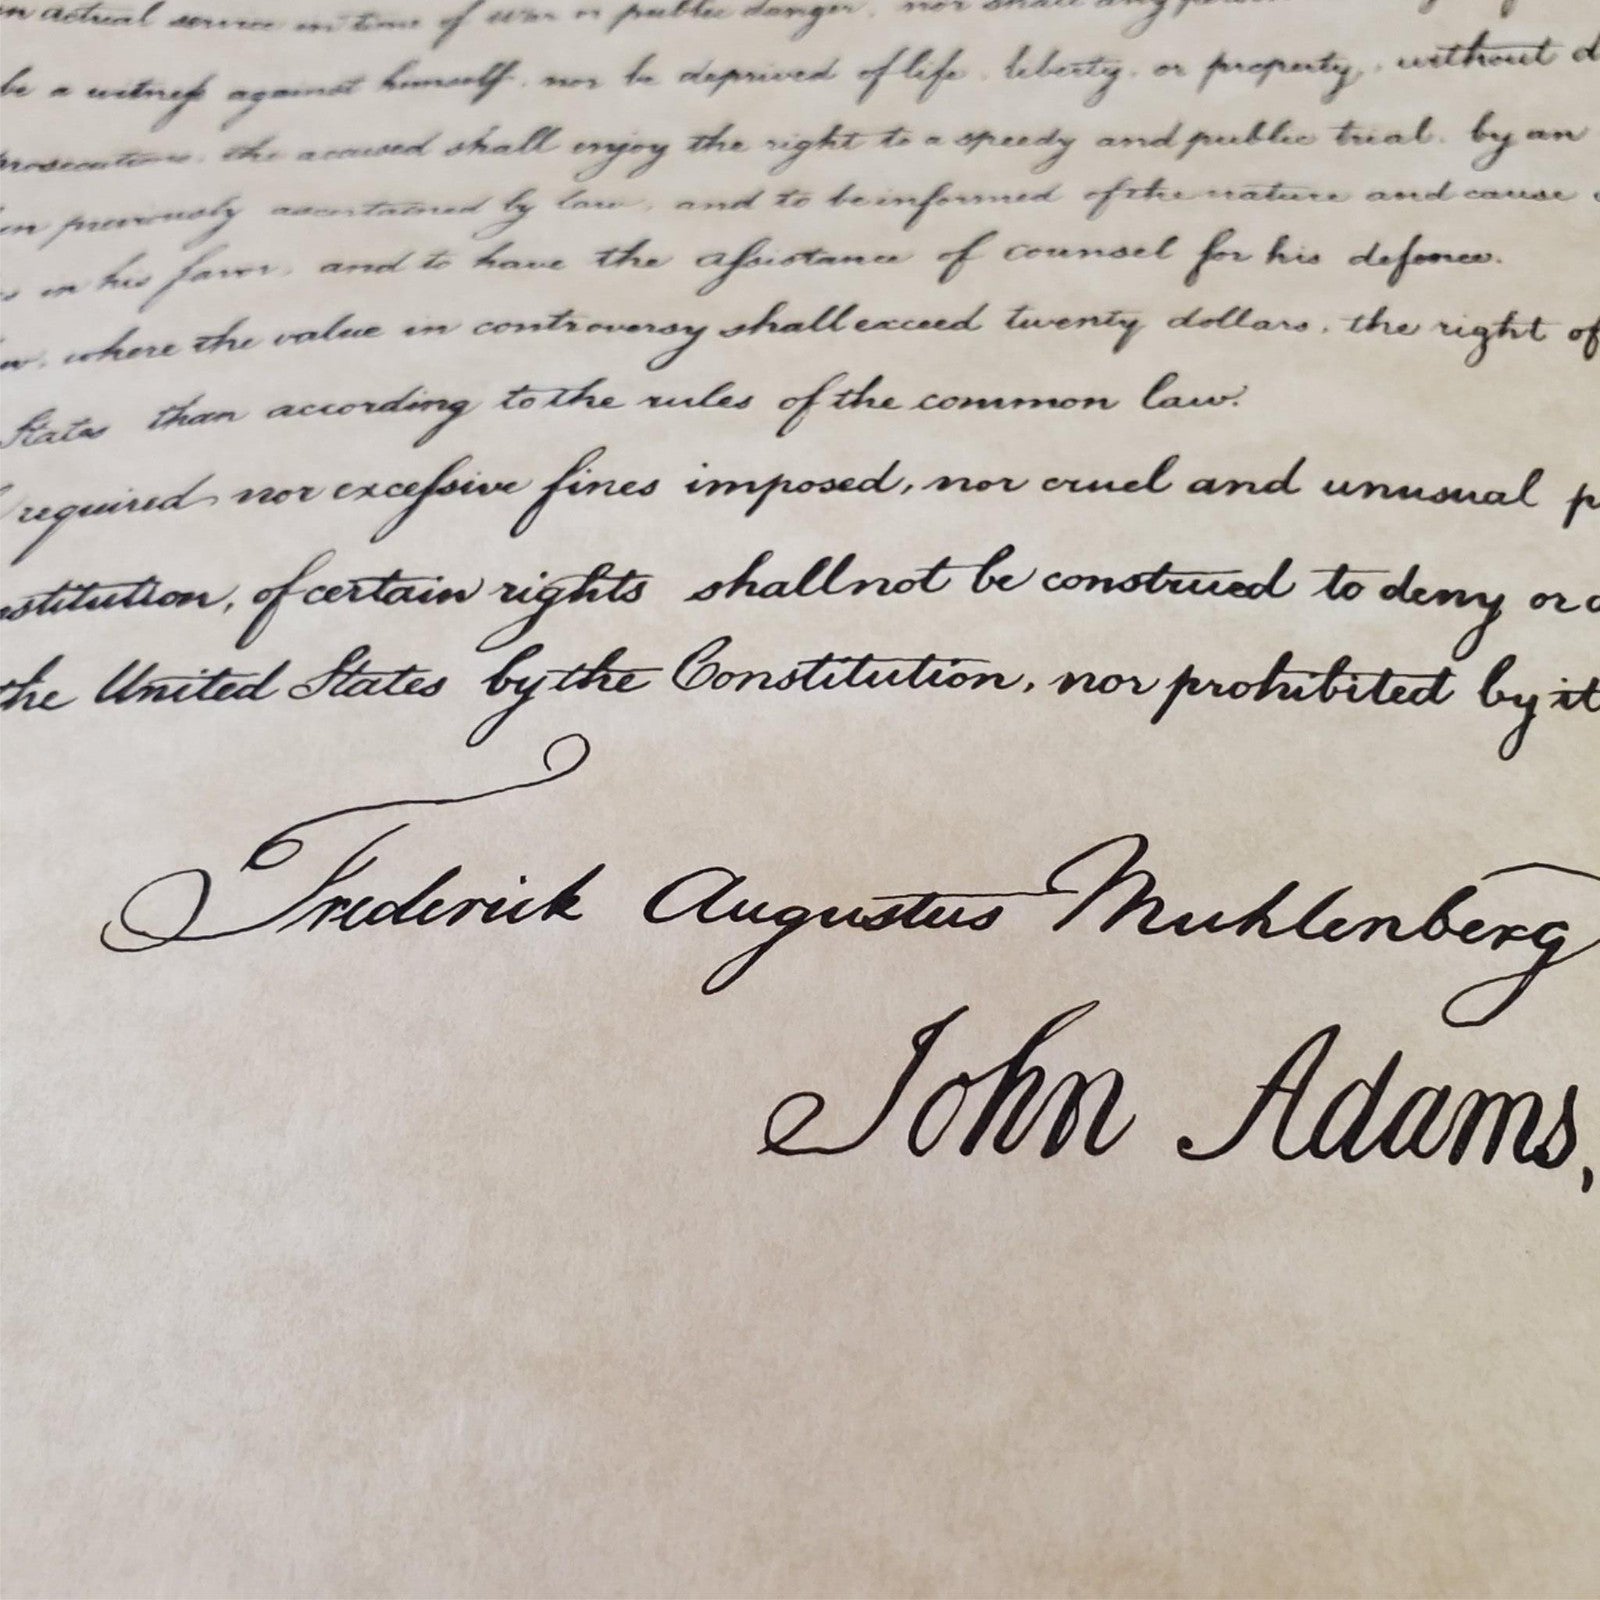 actual service in time of war or public danger, nor shall any person
be a witness against himself, nor be deprived of life, liberty, or property, without d
prosecutions, the accused shall enjoy the right to a speedy and public trial, by an
previously ascertained by law, and to be informed of the nature and cause
in his favor, and to have the assistance of counsel for his defence.
where the value in controversy shall exceed twenty dollars, the right of
States than according to the rules of the common law.
required nor excessive fines imposed, nor cruel and unusual p
stitution, of certain rights shall not be construed to deny or d
the United States by the Constitution, nor prohibited by it
Frederick Augustus Muhlenberg
John Adams,